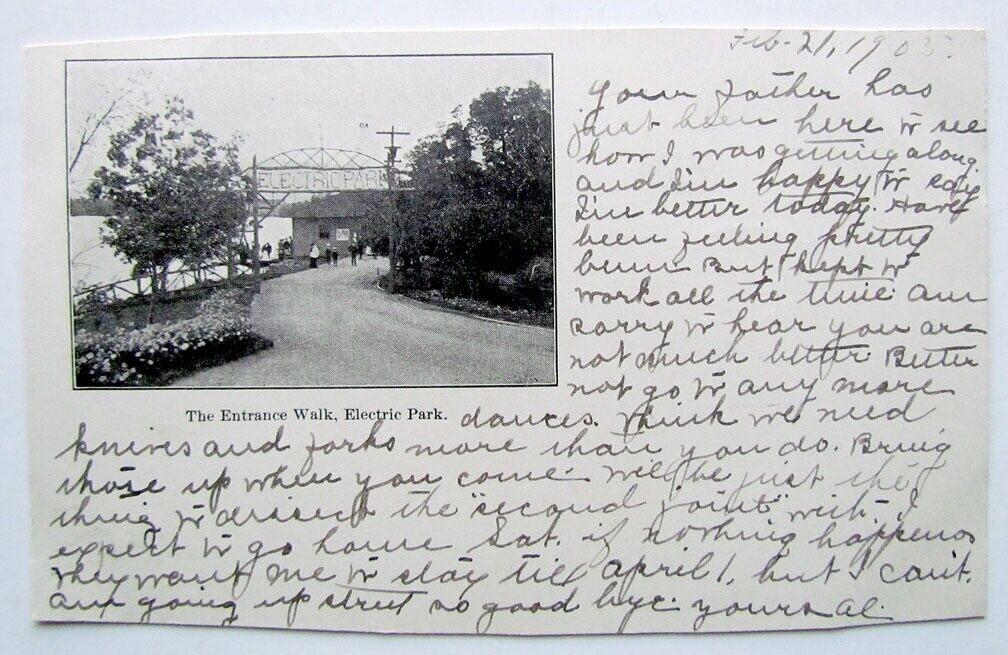 Feb-21, 1905.
Your father has
just been here to see
how I was getting along
and I'm happy to say
I'm better today. Have
been feeling pretty
bum But kept to
work all the time am
sorry to hear you are
not much better. Better
not go to any more
ELECTRIC PARK
The Entrance Walk, Electric Park.
dances. think we need
knives and forks more than you do. Bring
those up when you come. will be just the
thing to dissect the "second joint" with. I
expect to go home Sat. if nothing happens
they want me to stay till april 1, but I can't.
am going up street so good bye. yours Al.